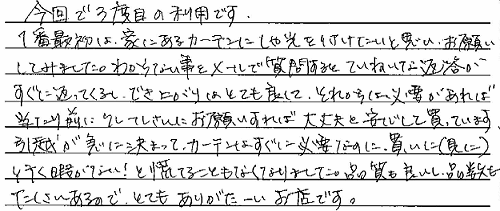 今回で3度目の利用です。
1番最初は、家にあるカーテンにしゃ光を付けたいと思い、お願い
してみました。わからない事をメールで質問するとていねいな返答が
すぐに返ってくるし、でき上がりはとても良くて、それからは必要があれば
当たり前に お願いすれば大丈夫と安心して買っています。
引越が急に決まって、カーテンはすぐに必要なのに、買いに(見に)
行く時間がない!と慌てることもなくなりました。品質も良いし、品数も
たくさんあるので、とてもありがたーいお店です。